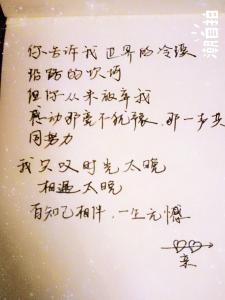 你告诉我世界的冷漠
陪我的坎坷
但你从未放弃我
感动那竟不犹豫，那一步共
同努力
我只叹时光太晚
相遇太晚
百知己相伴，一生无憾
亲
潮自拍